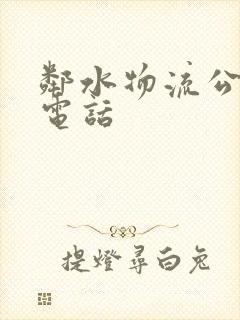 鄰水物流公
電話
提燈尋白兔